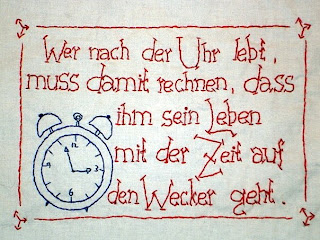 Wer nach der Uhr lebt,
muss damit rechnen, dass
ihm sein Leben
mit der Zeit auf
den Wecker geht.
12
3
6